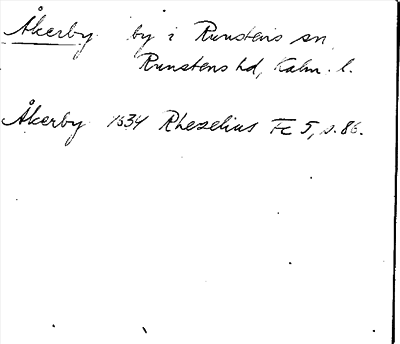 Åkerby by i Runstens sn,
Runstens hd, Kalm. l.
Åkerby 1634 Rhezelius Fc 5, s. 86.